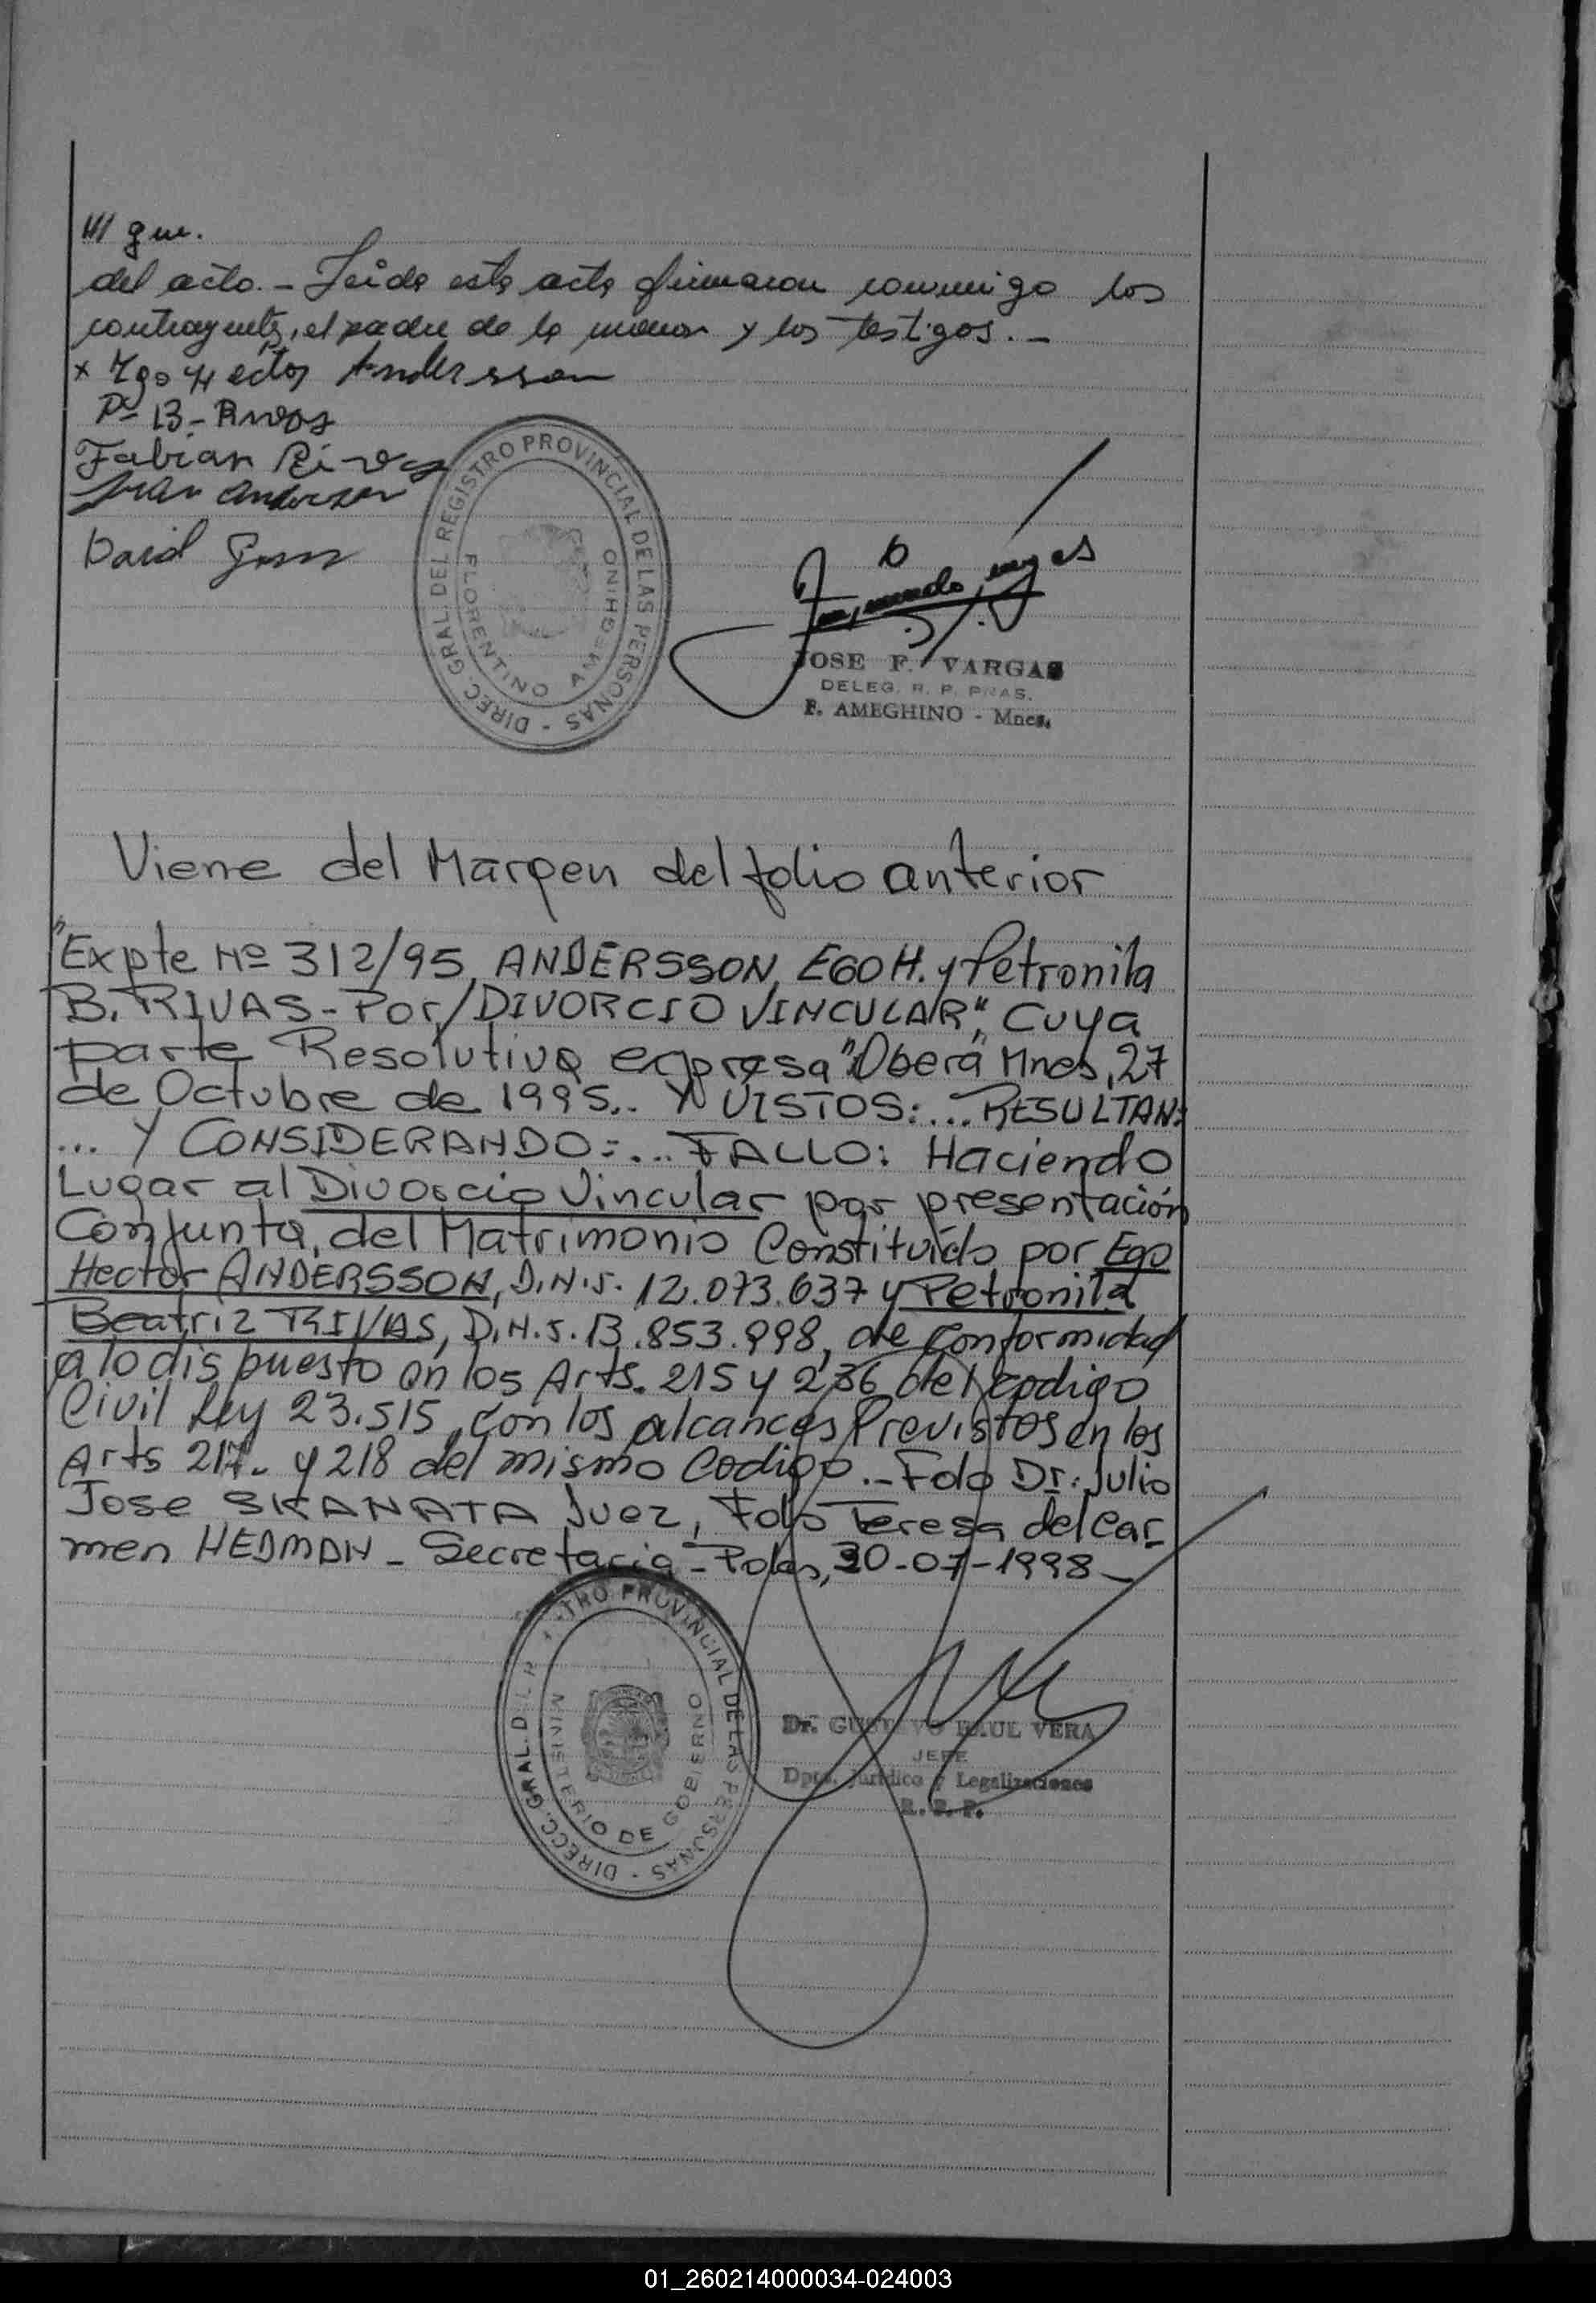 /// gue.
del acto. - Leida esta acta firmaron conmigo los
contrayentes, el padre de la menor y los testigos. -
x Ego Hector Andersson
P- B- Rivas
Fabian Rivas
Ivan Andersson
David
DIREC. GRAL. DEL REGISTRO PROVINCIAL DE LAS PERSONAS -
FLORENTINO AMEGHINO
JOSE F. VARGAS
DELEG. R. P. PNAS.
F. AMEGHINO - Mnes.
Viene del Margen del folio anterior
"Expte Nº 312/95, ANDERSSON, EGO H. y Petronila
B. RIVAS - Por/DIVORCIO VINCULAR", Cuya
parte Resolutiva expresa "Oberá Mnes, 27
de Octubre de 1995.. Y VISTOS: ... RESULTAN:
... Y CONSIDERANDO: ... FALLO: Haciendo
Lugar al Divorcio Vincular por presentación
Conjunta, del Matrimonio Constituído por Ego
Hector ANDERSSON, D.N.I. 12.073.637 y Petronila
Beatriz RIVAS, D.N.I. 13.853.998, de Conformidad
a lo dispuesto en los Arts. 215 y 236 del Codigo
Civil Ley 23.515, con los alcances Previstos en los
Arts 217. y 218 del mismo Codigo. - Fdo Dr. Julio
Jose SKANATA Juez, Fdo Teresa del Car-
men HEDMAN - Secretaria - Pdas, 30-07-1998 -
DIRECC. GRAL. DEL REGISTRO PROVINCIAL DE LAS PERSONAS -
MINISTERIO DE GOBIERNO
Dr. GUSTAVO RAUL VERA
JEFE
Dpto. Jurídico y Legalizaciones
R. P. P.
01_260214000034-024003